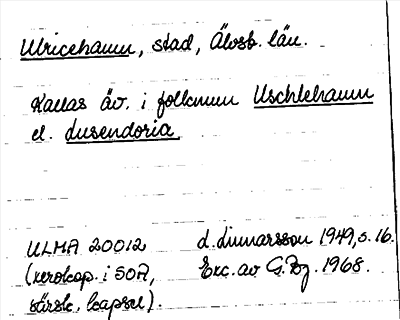 Ulricehamn, stad, Älvsb. län.
Kallas äv. i folkmun Uschlehamn
el. Dusendoria
ULMA 20012
d. Dinnarsson 1949, s. 16.
(xerokop. i SOA,
Exc. av G. Bg. 1968.
särsk. kapsel).